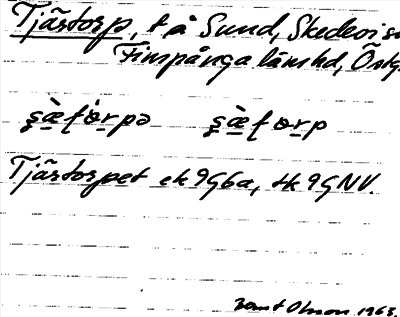 Tjärstorp, t å Sund, Skedevi sn
Finspånga länshd, Östg.
Tjärstorpet ek 9G6a, tk 9GNV.
Bernt Olsson 1963.